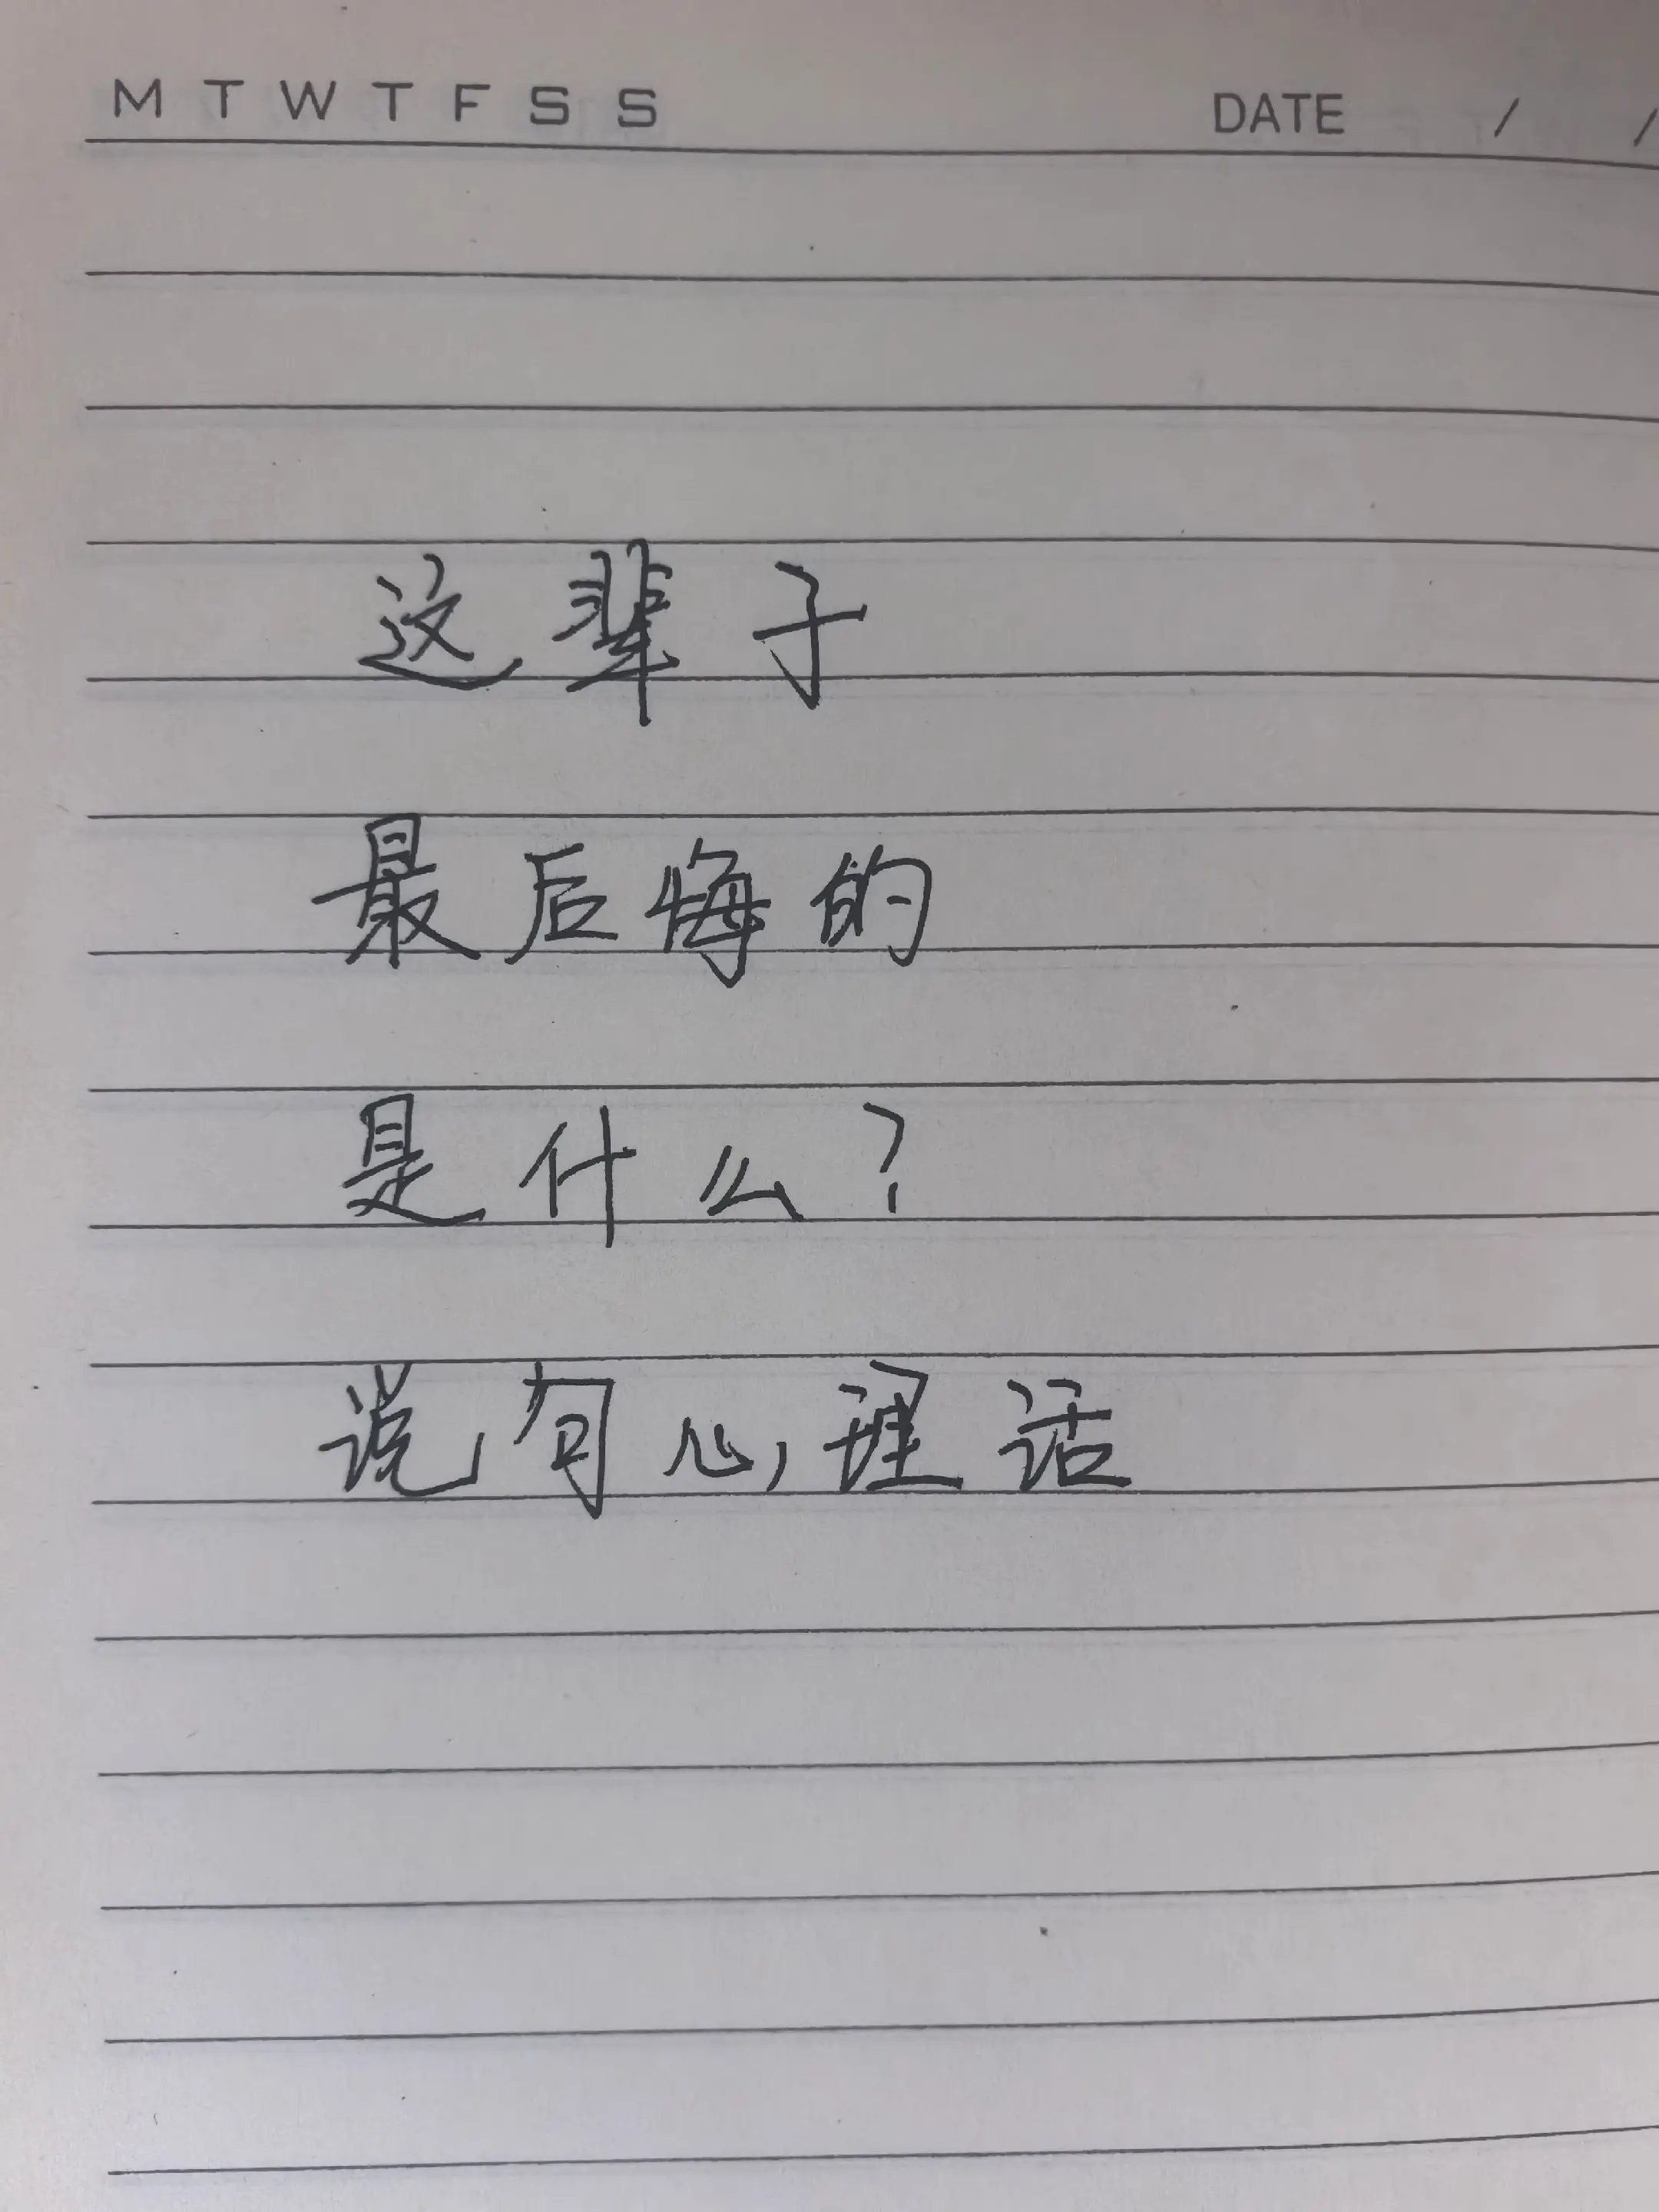 M T W T F S S DATE / /
这辈子
最后悔的
是什么?
说句心理话